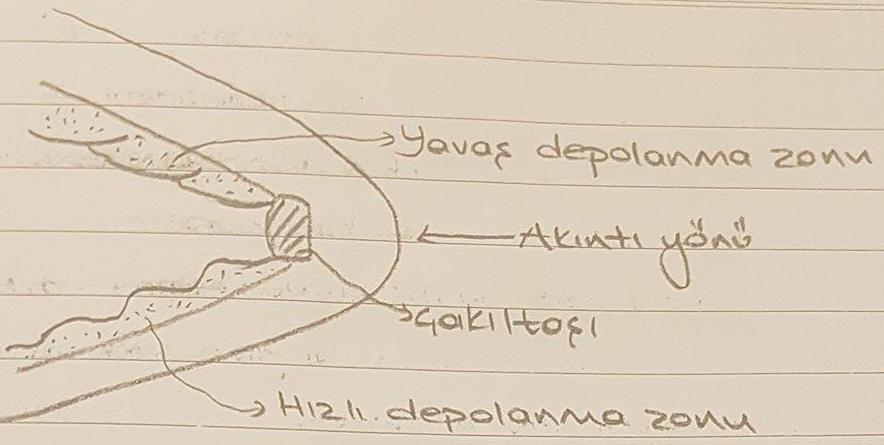 Yavaş depolanma zonu
Akıntı yönü
Çakıltaşı
Hızlı depolanma zonu